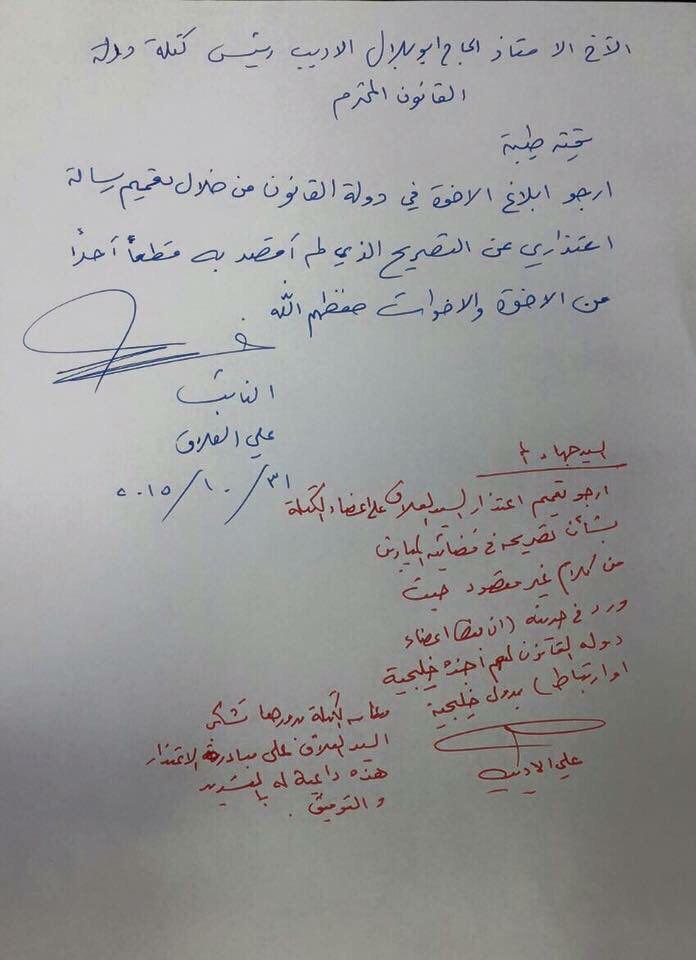 الأخ الاستاذ الحاج ابو بلال الاديب رئيس كتلة دولة
القانون المحترم
تحية طيبة
ارجو ابلاغ الاخوة في دولة القانون من خلال تعميم رسالة
اعتذاري عن التصريح الذي لم أقصد به قطعاً أحداً
من الاخوة والاخوات حفظهم الله
النائب
علي العلاق
٣١/١٠/٢٠١٥
السيد جهاد
ارجو تعميم اعتذار السيد العلاق على اعضاء الكتلة
بشأن تصريحه في فضائية
من كلام غير مقصود حيث
ورد في حديثه (ان بعض اعضاء
دولة القانون لهم أجندة خليجية
او ارتباط) بدول خليجية
الكتلة بدورها تشكر
السيد العلاق على مبادرة الاعتذار
هذه داعية له بالتسديد
والتوفيق.
علي الاديب